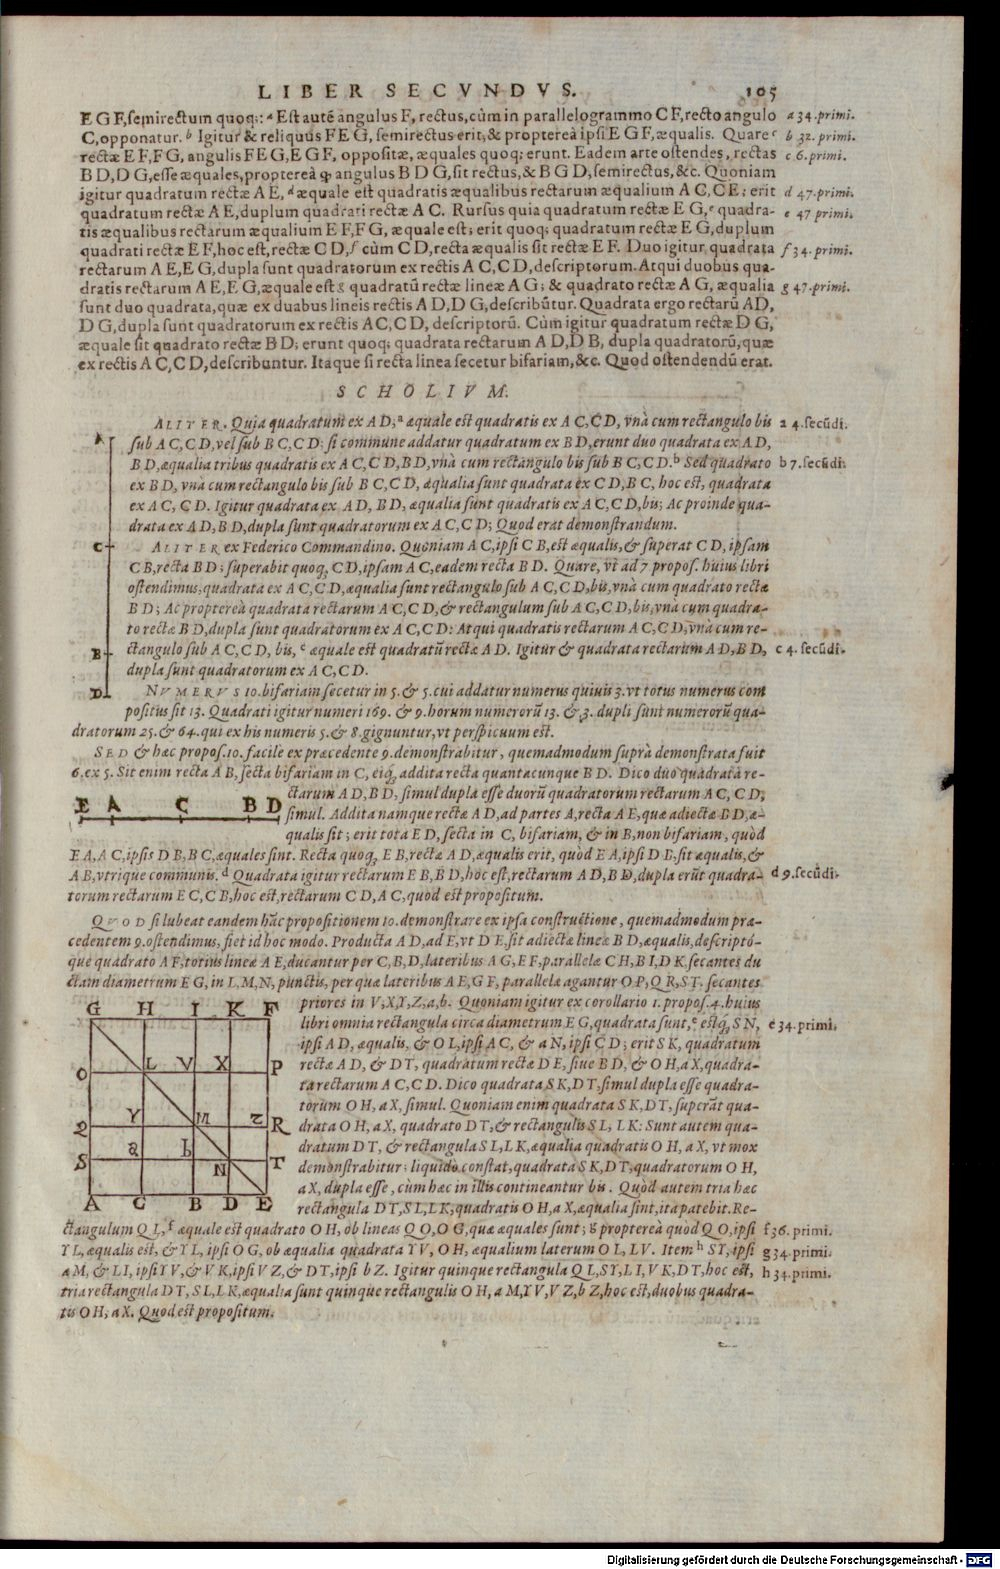 LIBER SECVNDVS. 105
E G F, semirectum quoq;: ᵃ Est autē angulus F, rectus, cùm in parallelogrammo C F, recto angulo a 34. primi.
C, opponatur. ᵇ Igitur & reliquus F E G, semirectus erit, & propterea ipsi E G F, æqualis. Quare ᶜ b 32. primi.
rectæ E F, F G, angulis F E G, E G F, oppositæ, æquales quoq; erunt. Eadem arte ostendes, rectas c 6. primi.
B D, D G, esse æquales, propterea ꝙ angulus B D G, sit rectus, & B G D, semirectus, &c. Quoniam
igitur quadratum rectæ A E, ᵈ æquale est quadratis æqualibus rectarum æqualium A C, C E; erit d 47. primi.
quadratum rectæ A E, duplum quadrati rectæ A C. Rursus quia quadratum rectæ E G, ᵉ quadra- e 47 primi.
tis æqualibus rectarum æqualium E F, F G, æquale est; erit quoq; quadratum rectæ E G, duplum
quadrati rectæ E F, hoc est, rectæ C D, ᶠ cùm C D, recta æqualis sit rectæ E F. Duo igitur quadrata f 34. primi.
rectarum A E, E G, dupla sunt quadratorum ex rectis A C, C D, descriptorum. Atqui duobus qua-
dratis rectarum A E, E G, æquale est ᵍ quadratū rectæ lineæ A G; & quadrato rectæ A G, æqualia g 47. primi.
sunt duo quadrata, quæ ex duabus lineis rectis A D, D G, describūtur. Quadrata ergo rectarū A D,
D G, dupla sunt quadratorum ex rectis A C, C D, descriptorū. Cùm igitur quadratum rectæ D G,
æquale sit quadrato rectæ B D; erunt quoq; quadrata rectarum A D, D B, dupla quadratorū, quæ
ex rectis A C, C D, describuntur. Itaque si recta linea secetur bifariam, &c. Quod ostendendū erat.
SCHOLIVM.
ALITER. Quia quadratum ex A D, ᵃ æquale est quadratis ex A C, C D, vnà cum rectangulo bis a 4. secūdi.
sub A C, C D, vel sub B C, C D: si commune addatur quadratum ex B D, erunt duo quadrata ex A D,
B D, æqualia tribus quadratis ex A C, C D, B D, vnà cum rectangulo bis sub B C, C D. ᵇ Sed quadrato b 7. secūdi.
ex B D, vnà cum rectangulo bis sub B C, C D, æqualia sunt quadrata ex C D, B C, hoc est, quadrata
ex A C, C D. Igitur quadrata ex A D, B D, æqualia sunt quadratis ex A C, C D, bis; Ac proinde qua-
drata ex A D, B D, dupla sunt quadratorum ex A C, C D; Quod erat demonstrandum.
ALITER ex Federico Commandino. Quoniam A C, ipsi C B, est æqualis, & superat C D, ipsam
C B, recta B D; superabit quoq; C D, ipsam A C, eadem recta B D. Quare, vt ad 7 propos. huius libri
ostendimus, quadrata ex A C, C D, æqualia sunt rectangulo sub A C, C D, bis, vnà cum quadrato rectæ
B D; Ac propterea quadrata rectarum A C, C D, & rectangulum sub A C, C D, bis, vnà cum quadra-
to rectæ B D, dupla sunt quadratorum ex A C, C D: Atqui quadratis rectarum A C, C D, vnà cum re-
ctangulo sub A C, C D, bis, ᶜ æquale est quadratū rectæ A D. Igitur & quadrata rectarum A D, B D, c 4. secūdi.
dupla sunt quadratorum ex A C, C D.
A
C
B
D
NVMERVS 10. bifariam secetur in 5. & 5. cui addatur numerus quiuis 3. vt totus numerus com
positus sit 13. Quadrati igitur numeri 169. & 9. horum numerorū 13. & 3. dupli sunt numerorū qua-
dratorum 25. & 64. qui ex his numeris 5. & 8. gignuntur, vt perspicuum est.
SED & hæc propos. 10. facile ex præcedente 9. demonstrabitur, quemadmodum suprà demonstrata fuit
6. ex 5. Sit enim recta A B, secta bifariam in C, eiq; addita recta quantacunque B D. Dico duo quadrata re-
ctarum A D, B D, simul dupla esse duorū quadratorum rectarum A C, C D,
simul. Addita namque rectæ A D, ad partes A, recta A E, quæ adiectæ B D, æ-
qualis sit; erit tota E D, secta in C, bifariam, & in B, non bifariam, quòd
E A C B D
E A, A C, ipsis D B, B C, æquales sint. Recta quoq; E B, rectæ A D, æqualis erit, quòd E A, ipsi D B, sit æqualis, &
A B, vtrique communis. ᵈ Quadrata igitur rectarum E B, B D, hoc est, rectarum A D, B D, dupla erūt quadra- d 9. secūdi.
torum rectarum E C, C B, hoc est, rectarum C D, A C, quod est propositum.
QVOD si lubeat eandem hāc propositionem 10. demonstrare ex ipsa constructione, quemadmodum præ-
cedentem 9. ostendimus, fiet id hoc modo. Producta A D, ad E, vt D E, sit adiectæ lineæ B D, æqualis, descripto-
que quadrato A F, totius lineæ A E, ducantur per C, B, D, lateribus A G, E F, parallelæ C H, B I, D K, secantes du
ctam diametrum E G, in L, M, N, punctis, per quæ lateribus A E, G F, parallelæ agantur O P, Q R, S T. secantes
priores in V, X, Y, Z, a, b. Quoniam igitur ex corollario 1. propos. 4. huius
libri omnia rectangula circa diametrum E G, quadrata sunt, ᵉ estq; S N, e 34. primi.
ipsi A D, æqualis, & O L, ipsi A C, & a N, ipsi C D; erit S K, quadratum
rectæ A D, & D T, quadratum rectæ D E, siue B D, & O H, a X, quadra-
ta rectarum A C, C D. Dico quadrata S K, D T, simul dupla esse quadra-
torum O H, a X, simul. Quoniam enim quadrata S K, D T, superāt qua-
drata O H, a X, quadrato D T, & rectangulis S L, L K: Sunt autem qua-
dratum D T, & rectangula S L, L K, æqualia quadratis O H, a X, vt mox
demonstrabitur; liquido constat, quadrata S K, D T, quadratorum O H,
a X, dupla esse, cùm hæc in illis contineantur bis. Quòd autem tria hæc
rectangula D T, S L, L K, quadratis O H, a X, æqualia sint, ita patebit. Re-
G H I K F
L V X
O P
Y M Z
Q R
a b
S N T
A C B D E
ctangulum Q L, ᶠ æquale est quadrato O H, ob lineas Q O, O G, quæ æquales sunt; ᵍ propterea quòd Q O, ipsi f 36. primi.
Y L, æqualis est, & Y L, ipsi O G, ob æqualia quadrata Y V, O H, æqualium laterum O L, L V. Item ʰ S Y, ipsi g 34. primi.
a M, & L I, ipsi Y V, & V K, ipsi V Z, & D T, ipsi b Z. Igitur quinque rectangula Q L, S Y, L I, V K, D T, hoc est, h 34. primi.
tria rectangula D T, S L, L K, æqualia sunt quinque rectangulis O H, a M, Y V, V Z, b Z, hoc est, duobus quadra-
tis O H, a X. Quod est propositum.
Digitalisierung gefördert durch die Deutsche Forschungsgemeinschaft - DFG